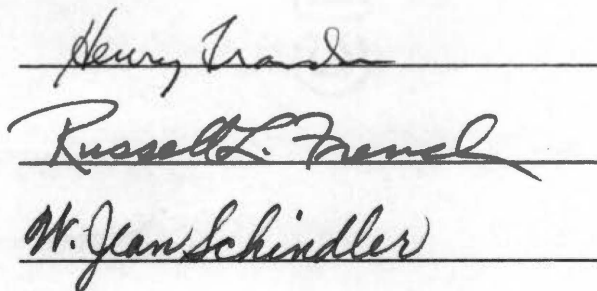 Henry
Russell L. French
W. Jean Schindler